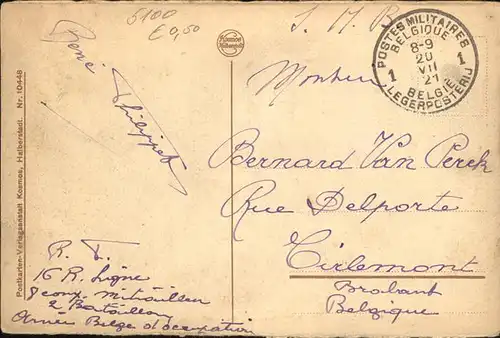 5100
€ 0,50
S. M. B
René Philippet
Kosmos
Halberstadt
POSTES MILITAIRES
BELGIQUE
8-9
20
VII
21
1 1
BELGIE
LEGERPOSTERIJ
Monsieur
Bernard Van Perck
Rue Delporte
Tirlemont
Brabant
Belgique
R. T.
16 R. Ligne
8 comp. Mitrailleu
2 Bataillon
Armée Belge d'occupation
Postkarten-Verlagsanstalt Kosmos, Halberstadt. Nr. 10448